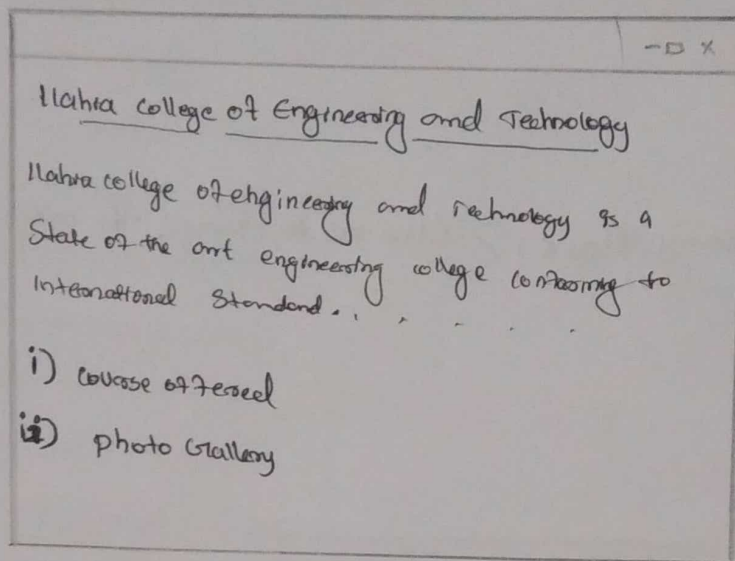 Ilahia college of Engineering and Technology
Ilahia college of engineering and Technology is a
State of the art engineering college conforming to
International Standard. . . . .
i) Course offered
ii) photo Gallery